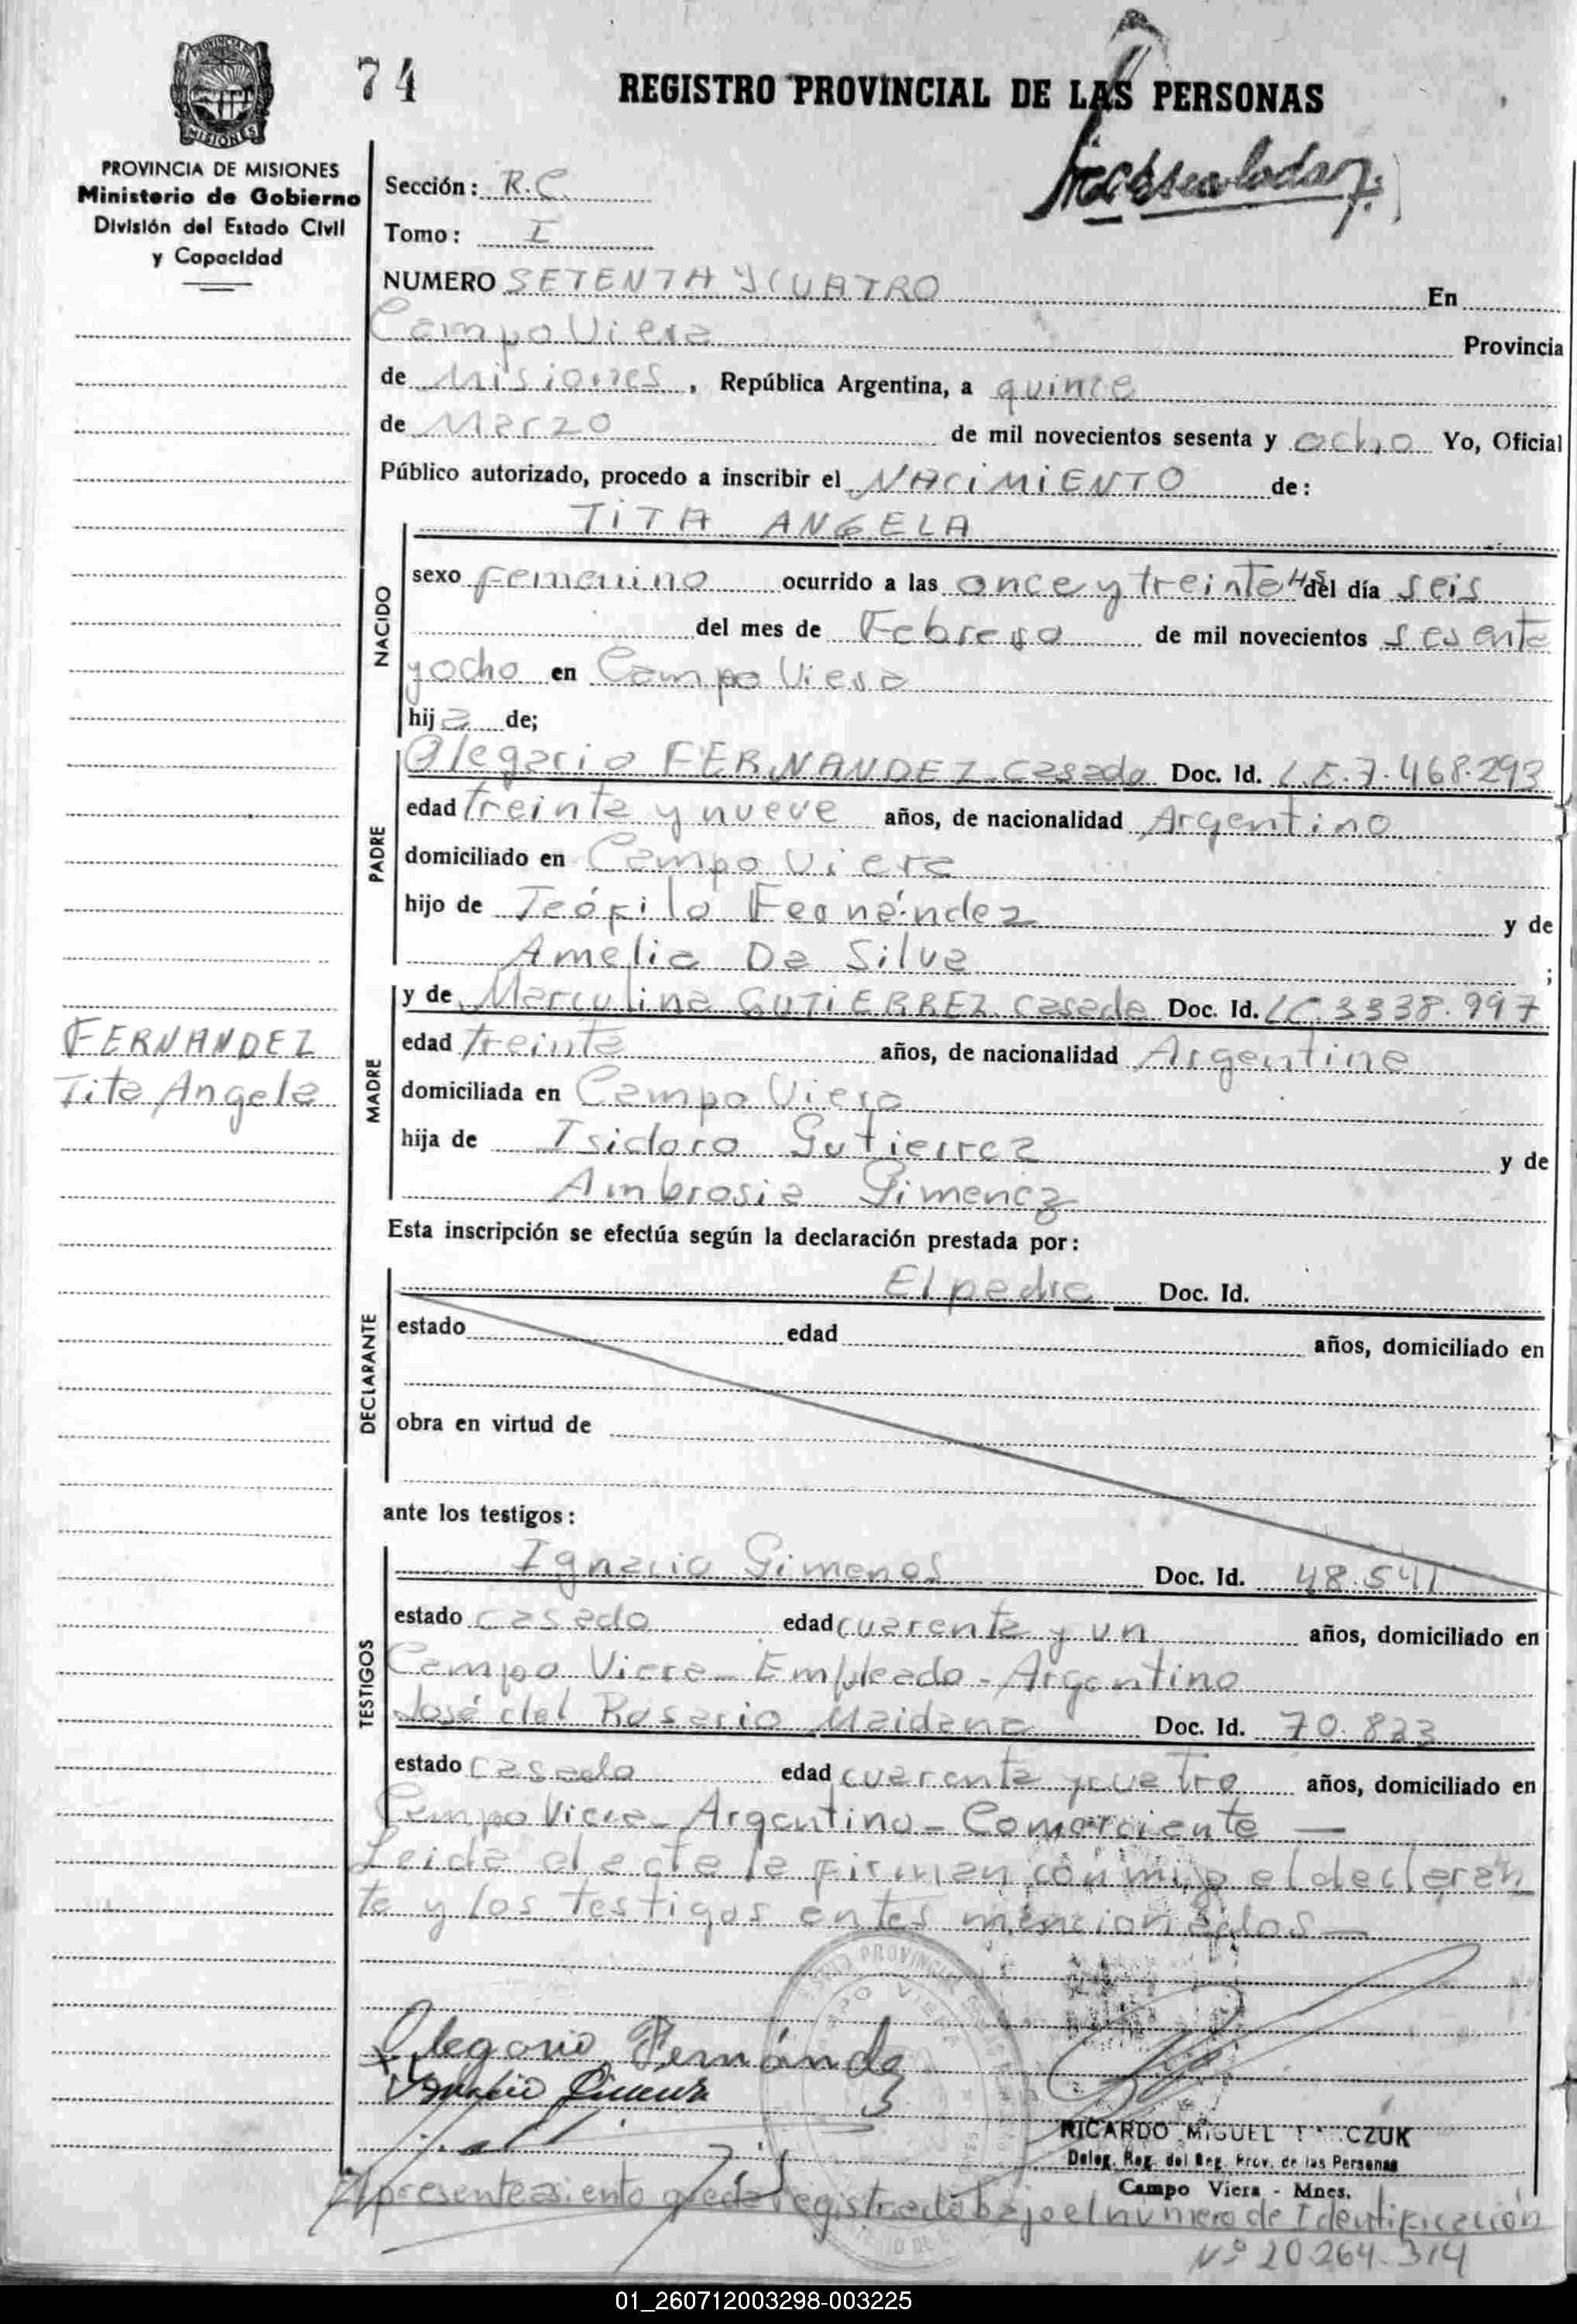 74
REGISTRO PROVINCIAL DE LAS PERSONAS
PROVINCIA DE MISIONES
Ministerio de Gobierno
División del Estado Civil
y Capacidad
Sección: R.C.
Tomo: I
NUMERO SETENTA Y CUATRO En
Campo Viera Provincia
de Misiones, República Argentina, a quince
de Marzo de mil novecientos sesenta y ocho Yo, Oficial
Público autorizado, procedo a inscribir el NACIMIENTO de:
TITA ANGELA
NACIDO
sexo femenino ocurrido a las once y treinta hs del día seis
del mes de Febrero de mil novecientos sesenta
y ocho en Campo Viera
hija de;
PADRE
Olegario FERNANDEZ-casado Doc. Id. L.E.7.468.293
edad treinta y nueve años, de nacionalidad Argentino
domiciliado en Campo Viera
hijo de Teófilo Fernández y de
Amelia Da Silva ;
MADRE
y de Marculina GUTIERREZ. casada Doc. Id. LC.3338.997
edad treinta años, de nacionalidad Argentina
domiciliada en Campo Viera
hija de Isidoro Gutierrez y de
Ambrosia Gimenez
FERNANDEZ
Tita Angela
Esta inscripción se efectúa según la declaración prestada por:
DECLARANTE
El padre Doc. Id.
estado edad años, domiciliado en
obra en virtud de
ante los testigos:
TESTIGOS
Ignacio Gimenes Doc. Id. 48.541
estado casado edad cuarenta y un años, domiciliado en
Campo Viera - Empleado - Argentino
José del Rosario Maidana Doc. Id. 70.823
estado casado edad cuarenta y cuatro años, domiciliado en
Campo Viera - Argentino - Comerciante —
Leida el acta la firman conmigo el declaran
te y los testigos antes mencionados —
Olegario Fernández
Ignacio Gimenez
RICARDO MIGUEL CZUK
Deleg. Reg. del Reg. Prov. de las Personas
Campo Viera - Mnes.
El presente asiento queda registrado bajo el numero de Identificación
Nº 20.264.314
01_260712003298-003225